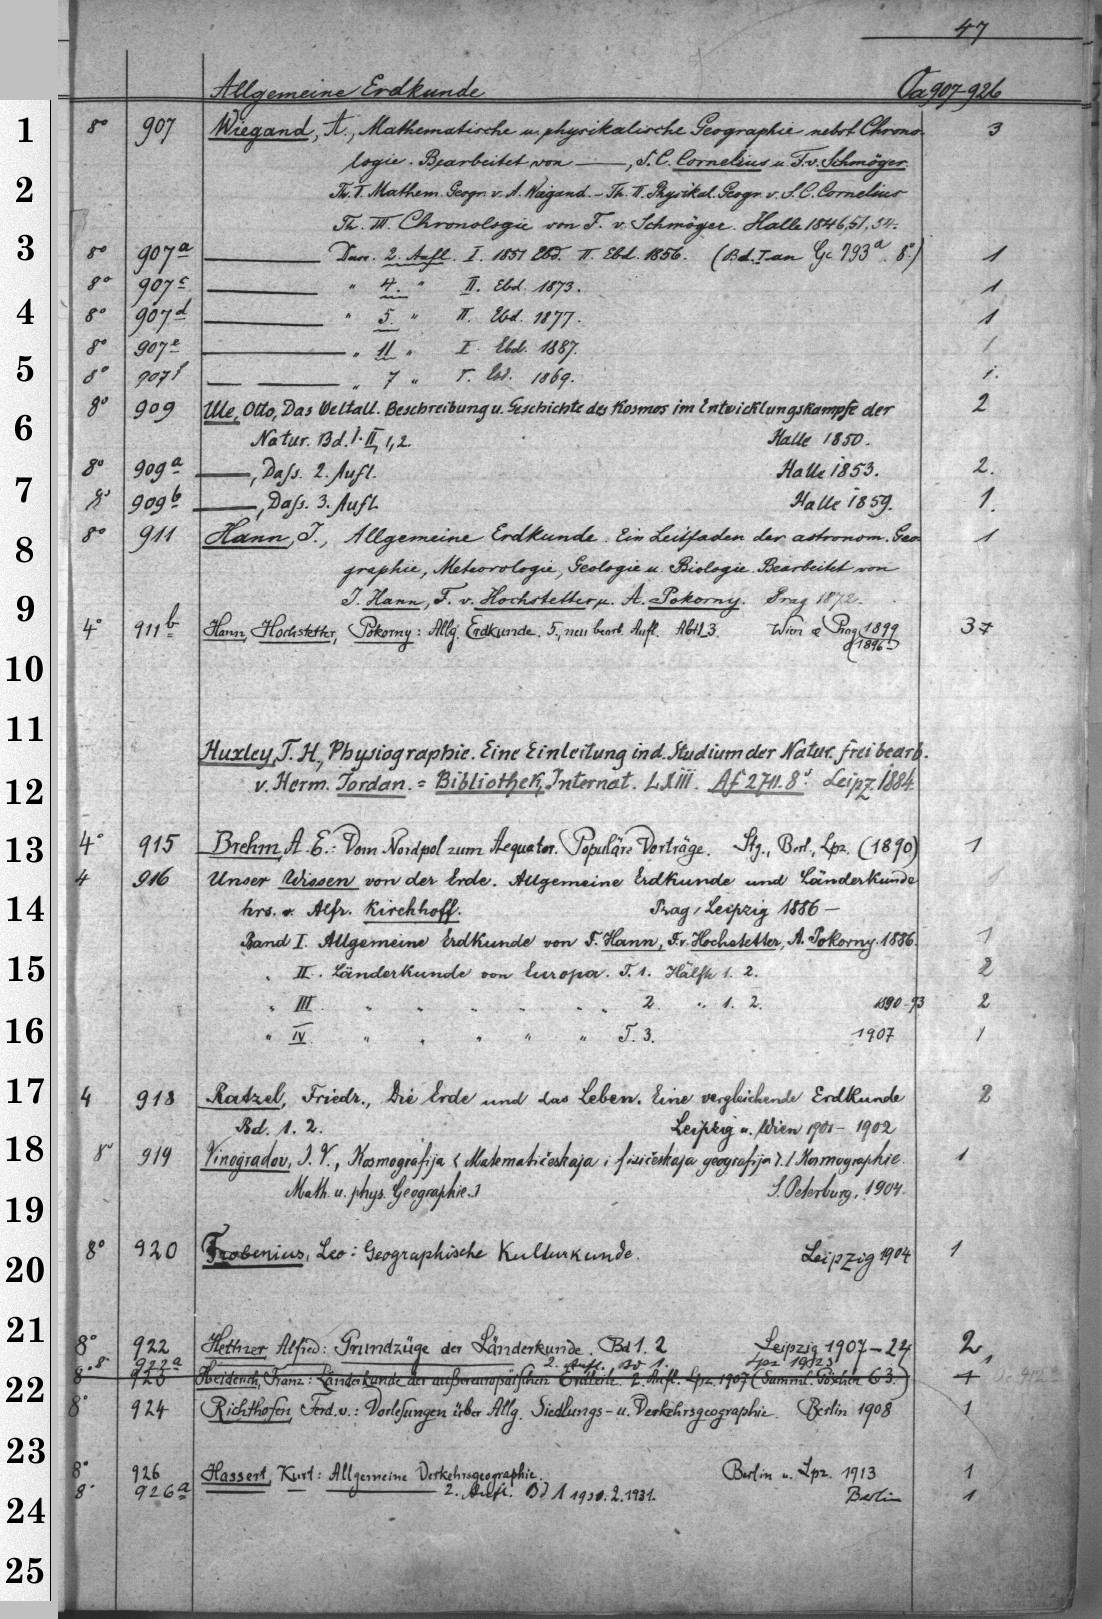 47
Allgemeine Erdkunde Oa 907-926
1 8° 907 Wiegand, A., Mathematische u. physikalische Geographie nebst Chrono- 3
logie. Bearbeitet von ——, S. C. Cornelius u. F. v. Schmöger.
2 Th. I. Mathem. Geogr. v. A. Wiegand. – Th. II. Physikal. Geogr. v. S. C. Cornelius
Th. III. Chronologie von F. v. Schmöger. Halle 1846, 51, 54.
3 8° 907a —— Dass. 2. Aufl. I. 1851 Ebd. II. Ebd. 1856. (Bd. I an Gc 793a. 8°.) 1
8° 907c —— " 4. " II. Ebd. 1873. 1
4 8° 907d —— " 5. " II. Ebd. 1877. 1
8° 907e —— " 11 " I. Ebd. 1887. 1
5 8° 907f —— —— " 7 " I. Ebd. 1869. 1.
8° 909 Ule, Otto, Das Weltall. Beschreibung u. Geschichte des Kosmos im Entwicklungskampfe der 2
6 Natur. Bd. I. II, 1, 2. Halle 1850.
8° 909a ——, Dass. 2. Aufl. Halle 1853. 2.
7 8° 909b ——, Dass. 3. Aufl. Halle 1859. 1.
8 8° 911 Hann, J., Allgemeine Erdkunde. Ein Leitfaden der astronom. Geo- 1
graphie, Meteorologie, Geologie u. Biologie. Bearbeitet von
9 J. Hann, F. v. Hochstetter u. A. Pokorny. Prag 1872.
4° 911b Hann, Hochstetter, Pokorny: Allg. Erdkunde. 5., neu bearb. Aufl. Abt 1. 3. Wien & Prag 1899 3
(1896-)
10
11
Huxley, T. H., Physiographie. Eine Einleitung in d. Studium der Natur. frei bearb.
12 v. Herm. Jordan. = Bibliothek, Internat. LXIII. Af 2711. 8°. Leipz. 1884.
13 4° 915 Brehm, A. E.: Vom Nordpol zum Aequator. Populäre Vorträge. Stg., Berl., Lpz. (1890) 1
4 916 Unser Wissen von der Erde. Allgemeine Erdkunde und Länderkunde
14 hrs. v. Alfr. Kirchhoff. Prag, Leipzig 1886 –
Band I. Allgemeine Erdkunde von J. Hann, F. v. Hochstetter, A. Pokorny. 1886. 1
15 " II. Länderkunde von Europa. T. 1. Hälfte 1. 2. 2
" III " " " " " " 2 " 1. 2. 1890-93 2
16 " IV. " " " " " T. 3. 1907 1
17 4 918 Ratzel, Friedr., Die Erde und das Leben. Eine vergleichende Erdkunde 2
Bd. 1. 2. Leipzig u. Wien 1901 – 1902
18 8° 919 Vinogradov, J. V., Kosmografija < Matematičeskaja i fizičeskaja geografija >. / Kosmographie. 1
Math. u. phys. Geographie. S. Peterburg, 1904.
19
8° 920 Frobenius, Leo: Geographische Kulturkunde. Leipzig 1904 1
20
21 8° 922 Hettner Alfred: Grundzüge der Länderkunde. Bd 1. 2 Leipzig 1907–24 2
8° 922a 2. Aufl. Bd 1. Lpz 1923 1
22 8° 923 Heiderich, Franz: Länderkunde der außereuropäischen Erdteile. 2. Aufl. Lpz. 1907 (Samml. Göschen 63.) 1
8° 924 Richthofen Ferd. v.: Vorlesungen über Allg. Siedlungs- u. Verkehrsgeographie. Berlin 1908 1
23
8° 926 Hassert, Kurt: Allgemeine Verkehrsgeographie. Berlin u. Lpz. 1913 1
8° 926a —— — —— 2. Aufl. Bd 1 1930. 2. 1931. Berlin 1
24
25